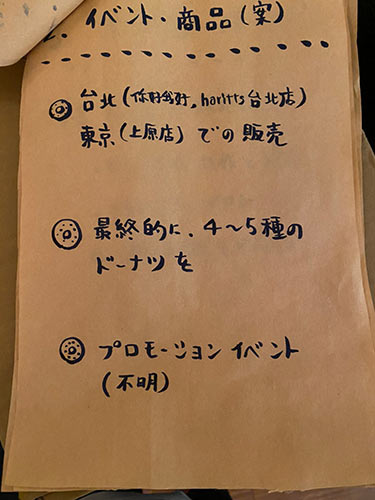 2. イベント・商品(案)
台北(你好我好, haritts台北店)
東京(上原店)での販売
最終的に、4〜5種の
ドーナツを
プロモーションイベント
(不明)